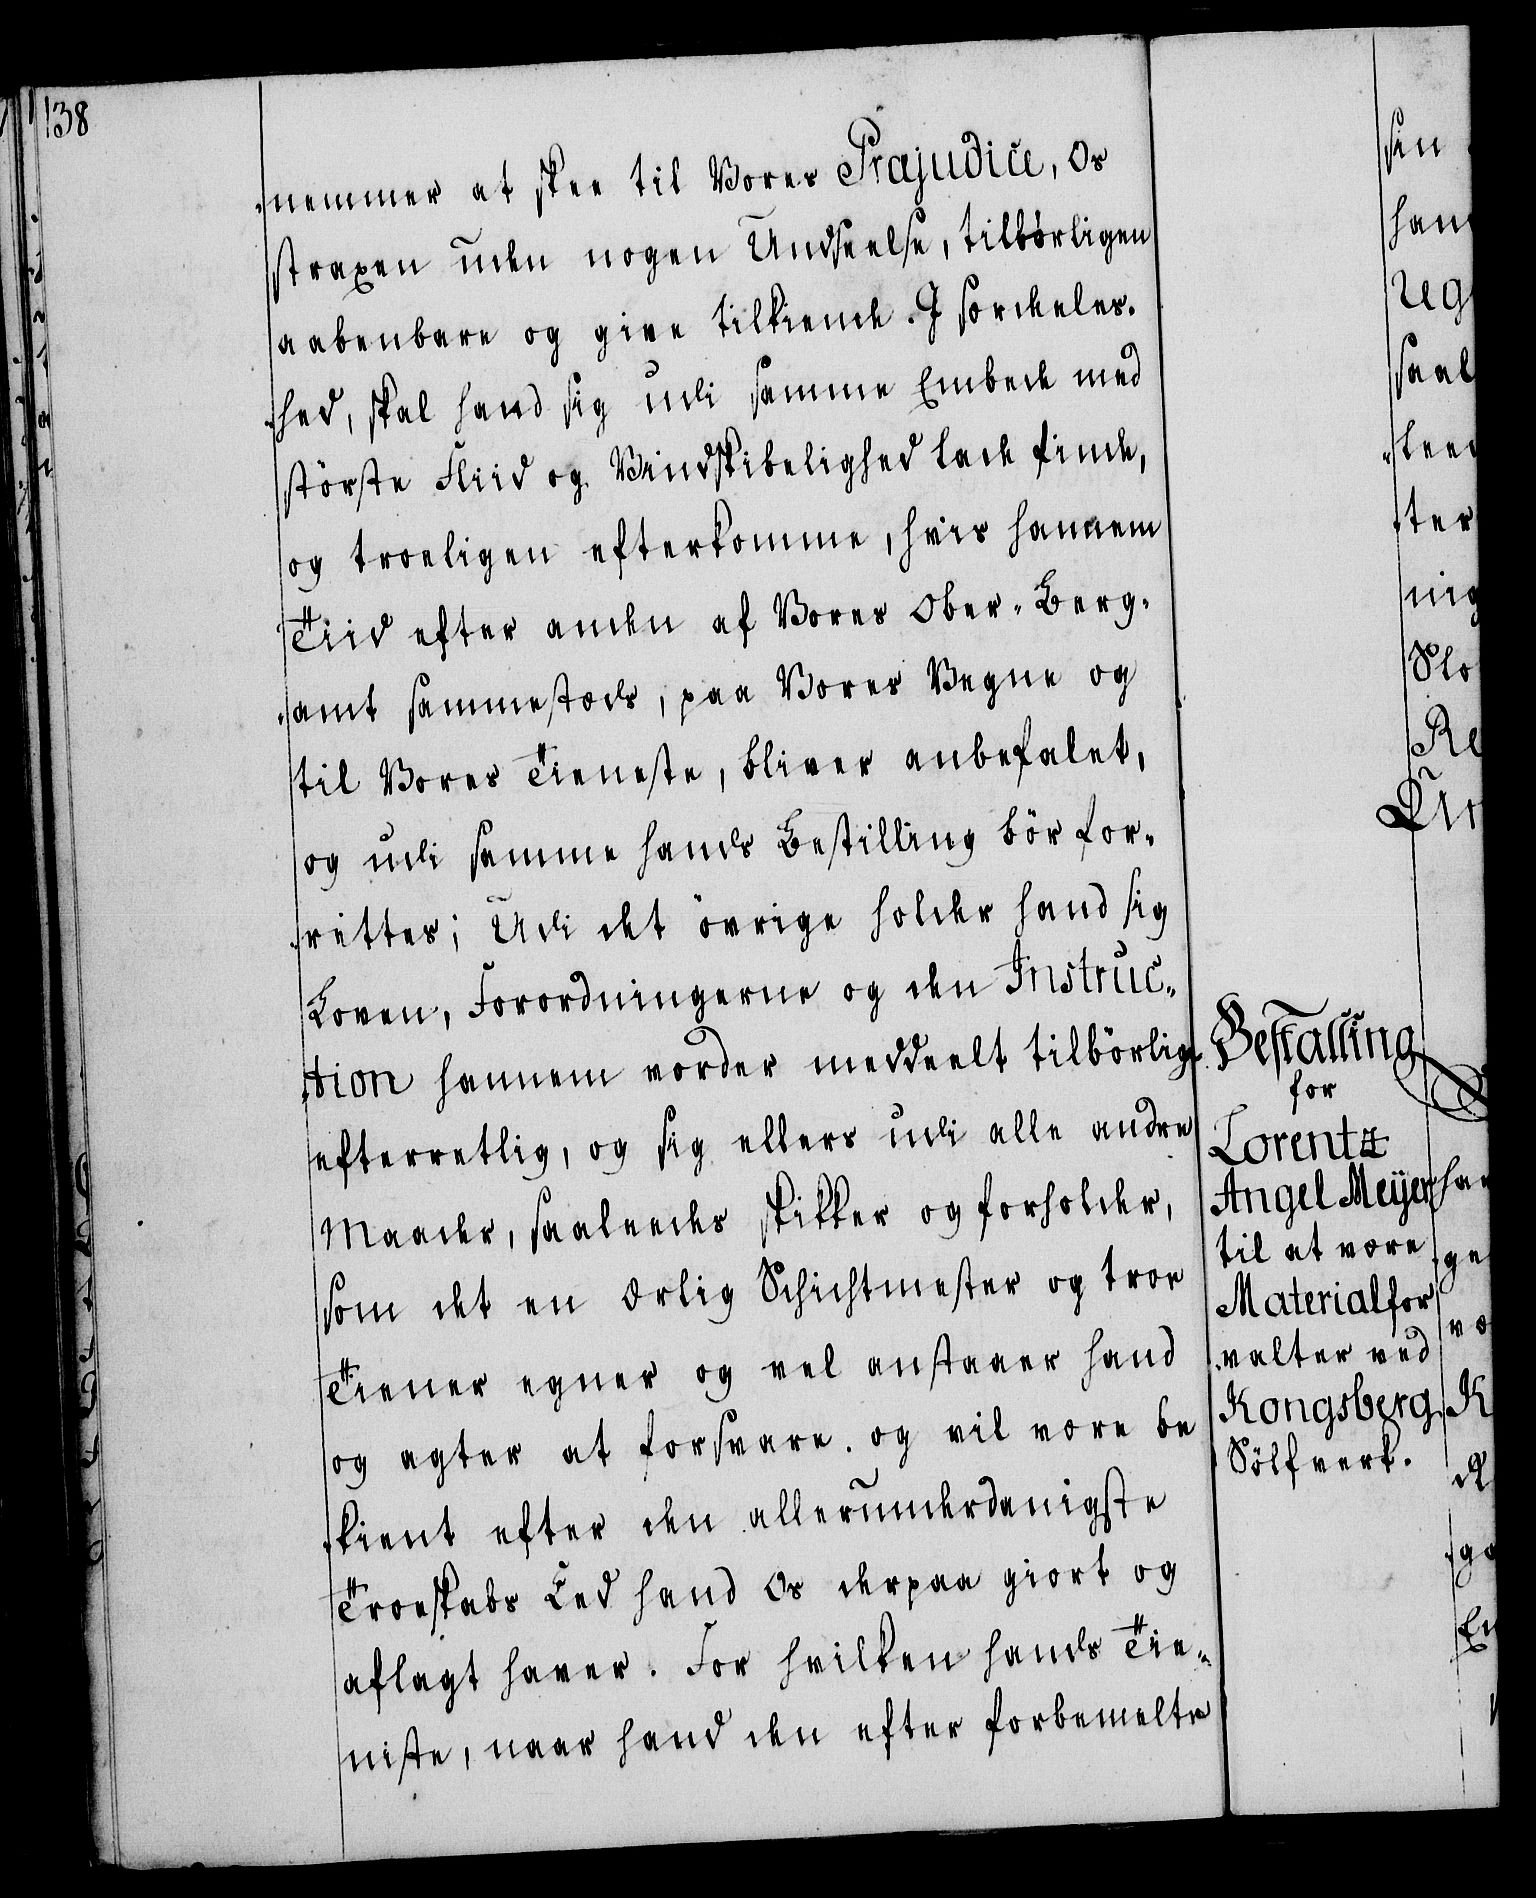 138
nemmer at skee til Vores Præjudice, Os
straxen uden nogen Undseelse, tilbørligen
aabenbare og give tilkiende. I sordeles-
hed, skal hand sig udi samme Embede med
störste Fliid og Vindskibelighed lade finde,
og troeligen efterkomme, hvis hannem
Tiid efter anden af Vores Ober-Berg-
amt sammestæds, paa Vores Vegne og
til Vores Tieneste, bliver anbefalet,
og udi samme hands Bestilling bör for-
rettes; Udi det övrige holder hand sig
Loven, Forordningerne og den Instruc-
tion hannem vorder meddeelt tilbörlig
efterretlig, og sig ellers udi alle andre
Maader, saaleedes skikker og forholder,
som det en ærlig Schichtmester og troe
Tiener egner og vel anstaaer hand
og agter at forsvare. og vil være be
kient efter den allerunderdanigste
Troeskabs Eed hand Os derpaa giort og
aflagt haver. For hvilken hands Tie-
niste, naar hand den efter forbemelte
Bestalling
for
Lorentz
Angel Meijer
til at være
Materialfor
valter ved
Kongsberg
Sölfverk.